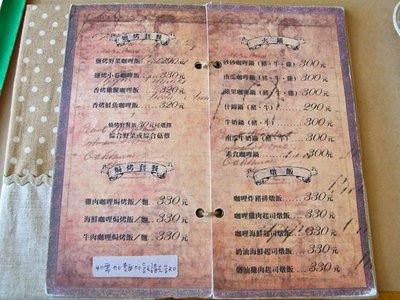 燒烤套餐
鹽烤野菜咖哩飯 290元
鹽烤小卷咖哩飯 330元
香烤雞腿咖哩飯 320元
香烤鮭魚咖哩飯 320元
燒烤套餐加30元可選擇
綜合野菜或綜合菇蕈
焗烤套餐
雞肉咖哩焗烤飯/麵 330元
海鮮咖哩焗烤飯/麵 330元
牛肉咖哩焗烤飯/麵 330元
火鍋
砂砂咖哩鍋(豬、牛、雞) 300元
南瓜咖哩鍋(豬、牛、雞) 300元
蘋果咖哩鍋(豬、牛、雞) 300元
什錦鍋(豬、牛) 290元
牛奶鍋(豬、牛) 300元
南瓜牛奶鍋(豬、牛) 300元
素食咖哩鍋 300元
燉飯
咖哩炸豬排燉飯 330元
咖哩雞肉起司燉飯 330元
咖哩海鮮起司燉飯 330元
奶油海鮮起司燉飯 330元
奶油雞肉起司燉飯 330元